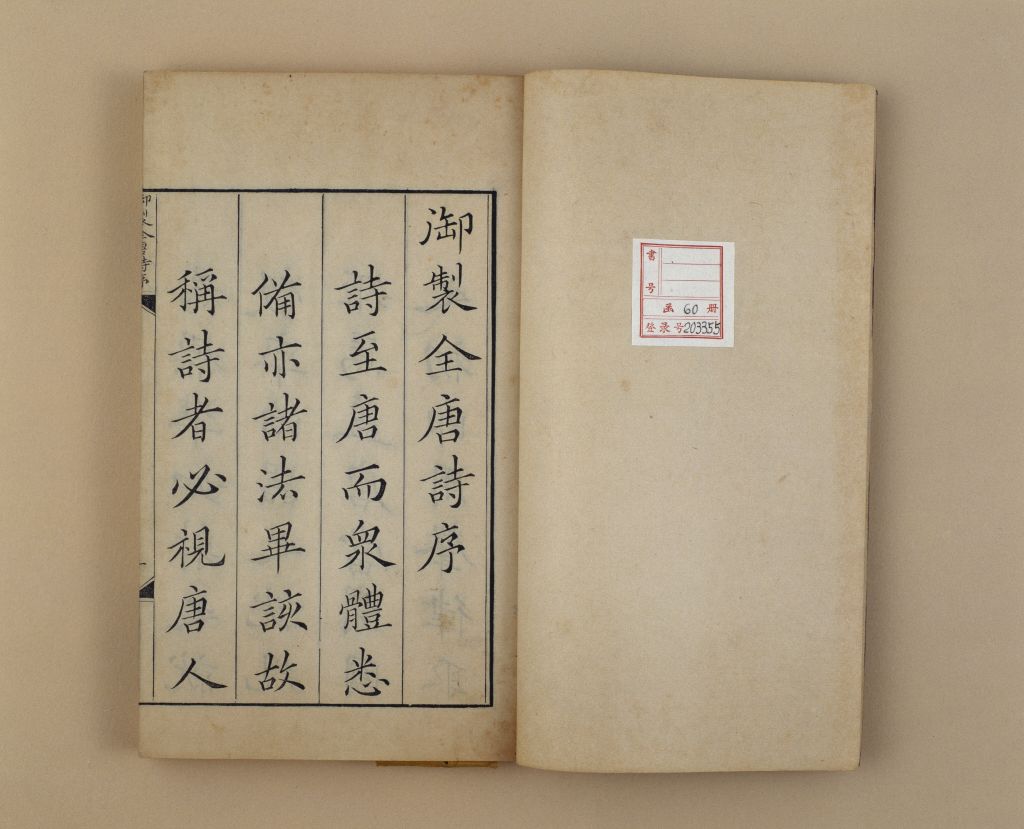 書号
函 60 册
登录号 203355
御製全唐詩序
詩至唐而衆體悉
備亦諸法畢該故
稱詩者必視唐人
御製全唐詩序